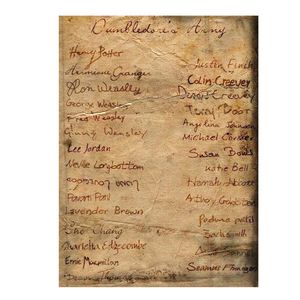 Dumbledore's Army
Harry Potter
Hermione Granger
Ron Weasley
George Weasley
Fred Weasley
Ginny Weasley
Lee Jordan
Neville Longbottom
Parvati Patil
Lavender Brown
Cho Chang
Marietta Edgecombe
Ernie Macmillan
Dean Thomas
Justin Finch
Colin Creevey
Dennis Creevey
Terry Boot
Angelina Johnson
Michael Corner
Susan Bones
Katie Bell
Hannah Abbott
Anthony Goldstein
Padma patil
Zach smith
Seamus Finnigan